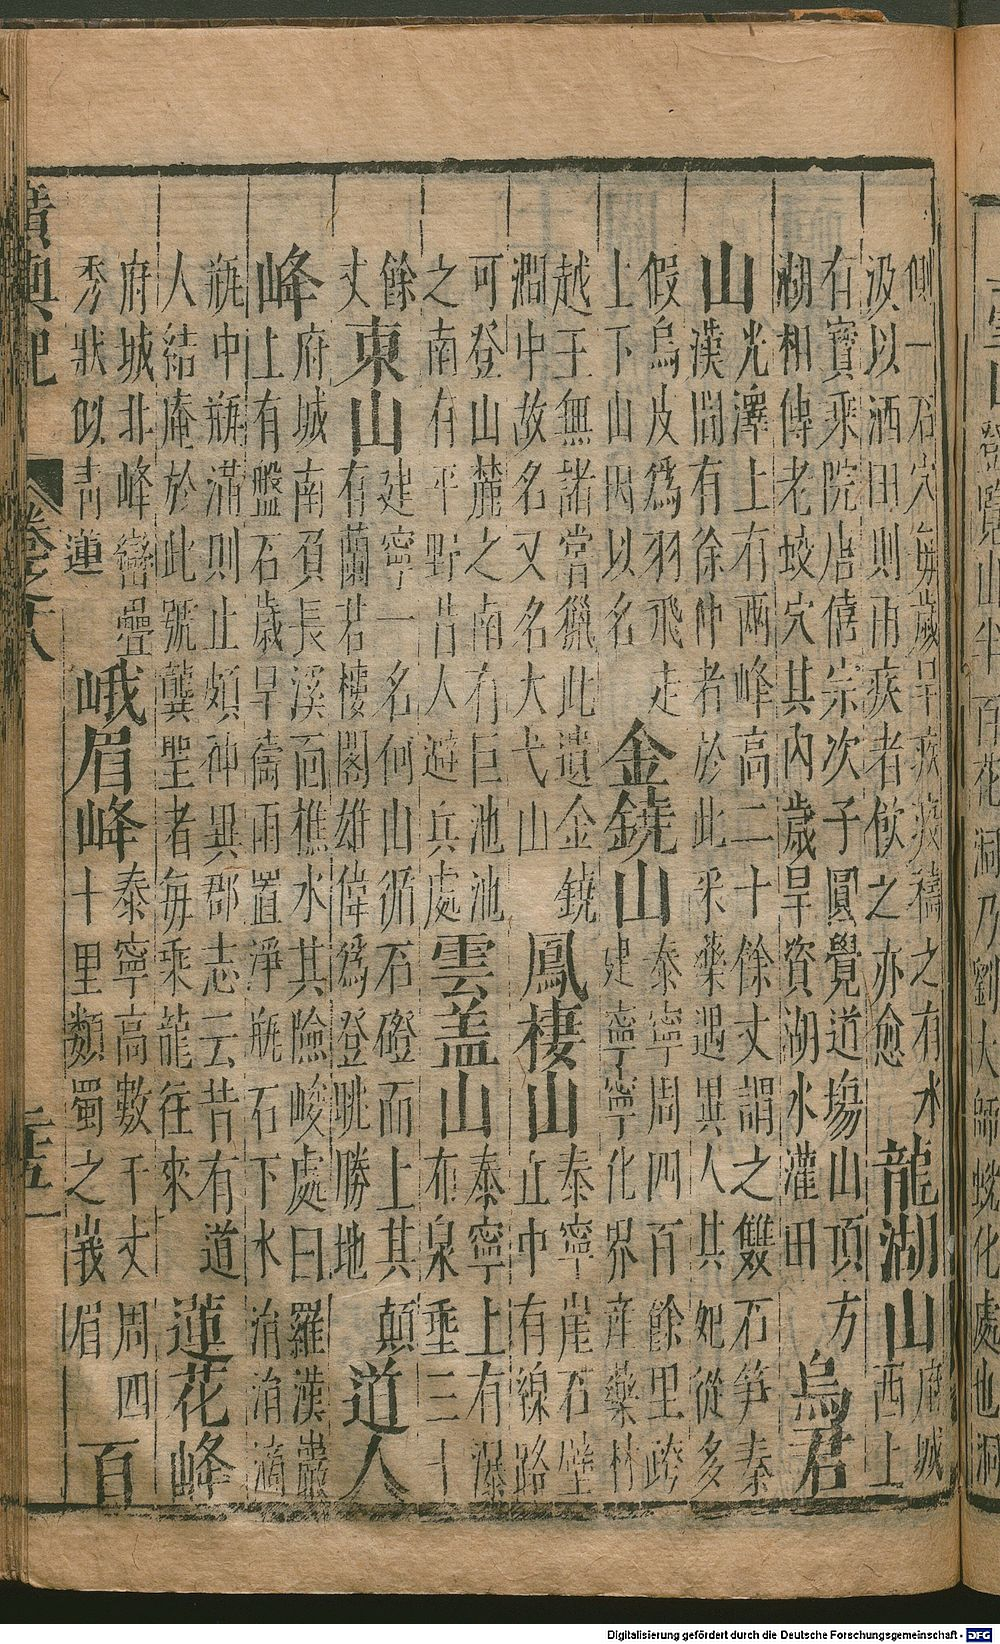 山半百花洞乃劉大師蛻化處也洞
側一石穴每歲旱疾疫禱之有水
汲以洒田則雨疾者飲之亦愈
龍湖山
府城
西上
有寶乘院唐僖宗次子圓覺道場山頂方
湖相傳老蛟穴其內歲旱資湖水灌田
烏君
山
光澤上有兩峰高二十餘丈謂之雙石笋秦
漢間有徐仲者於此采藥遇異人其妃從多
假烏皮爲羽飛走
上下山因以名
金鐃山
泰寧周四百餘里跨
建寧寧化界產藥材
越王無諸嘗獵此遺金鐃
澗中故名又名大弋山
鳳棲山
泰寧崖石壁
立中有線路
可登山麓之南有巨池池
之南有平野昔人避兵處
雲盖山
泰寧上有瀑
布泉垂三十
餘
丈
東山
建寧一名何山循石磴而上其顛
有蘭若樓閣雄偉爲登眺勝地
道人
峰
府城南負長溪面樵水其險峻處曰羅漢巖
上有盤石歲旱禱雨置淨瓶石下水涓涓滴
瓶中瓶滿則止頗神異郡志云昔有道
人結庵於此號龔聖者每乘龍往來
蓮花峰
府城北峰巒疊
秀狀似青蓮
峨眉峰
泰寧高數千丈周四
十里類蜀之峩眉
百
廣輿記
卷之十八
二十五
Digitalisierung gefördert durch die Deutsche Forschungsgemeinschaft - DFG